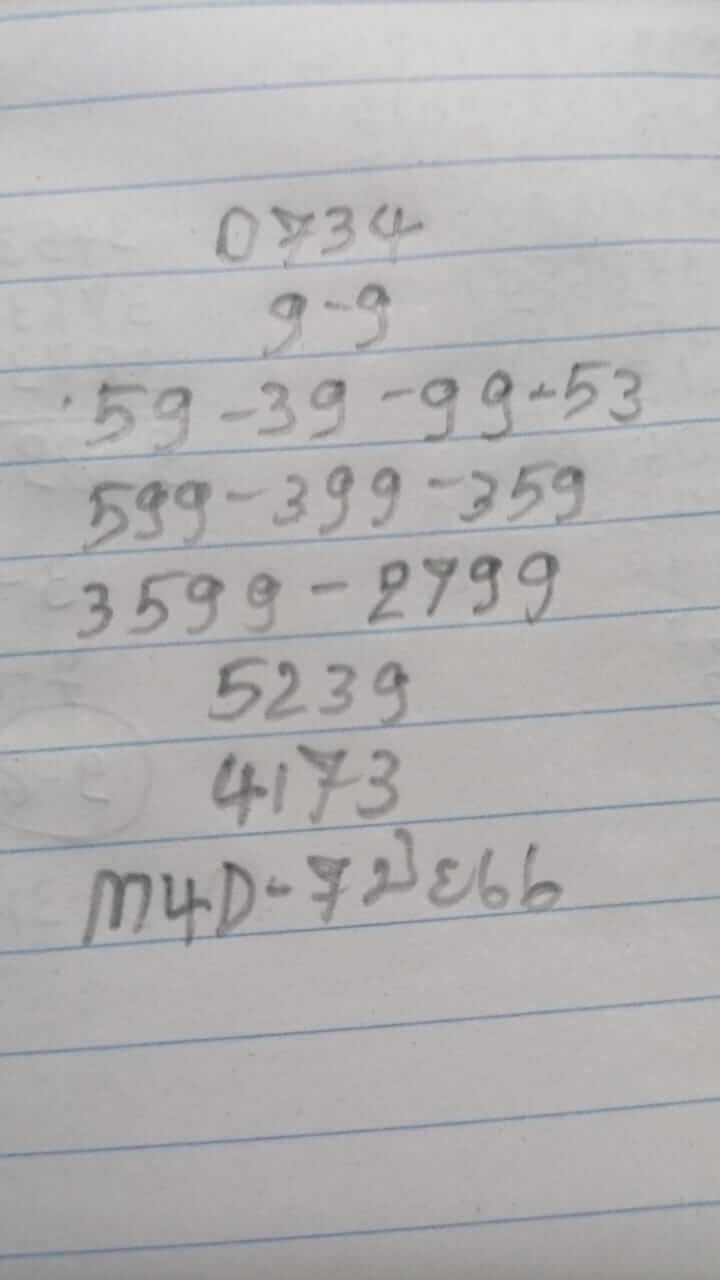 0734
9-9
59-39-99-53
599-399-359
3599-2799
5239
4173
M4D-7